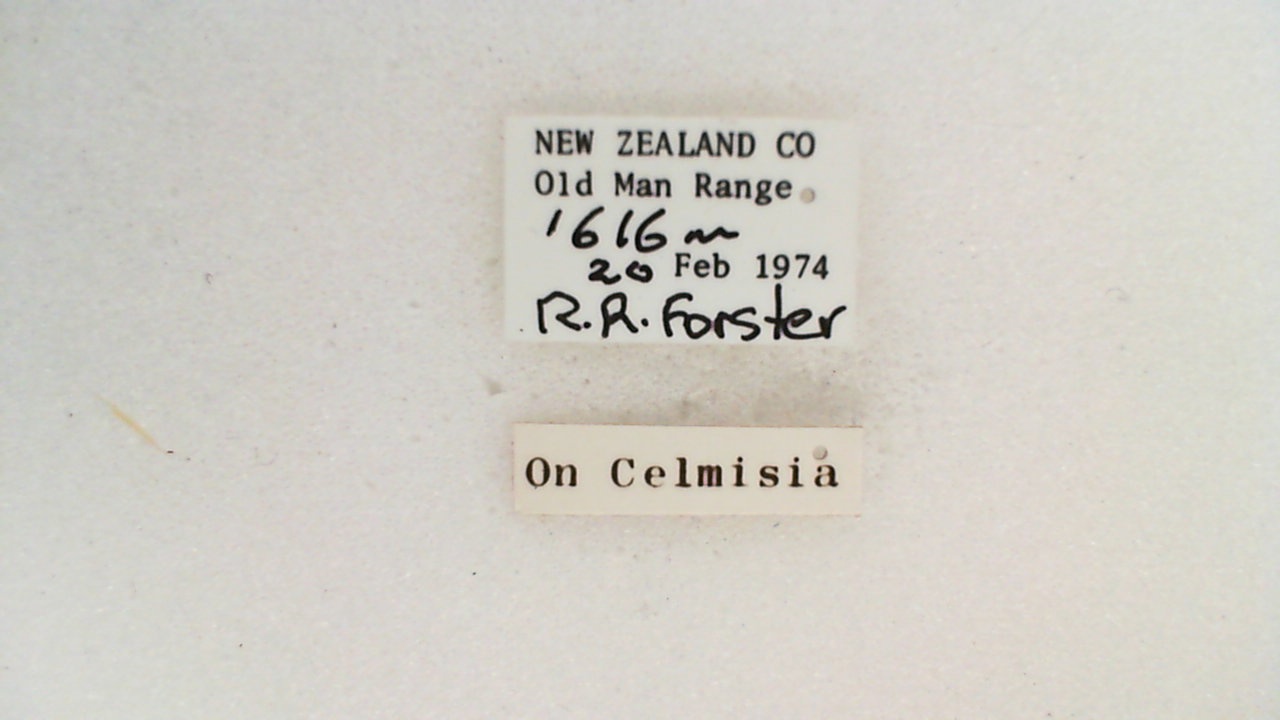 NEW ZEALAND CO
Old Man Range
1616 m
20 Feb 1974
R.R. Forster
On Celmisia